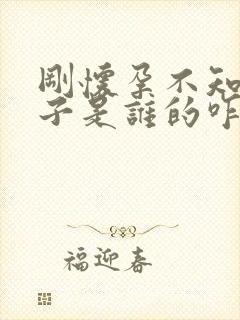 刚懷孕不知
子是誰的咋
福迎春